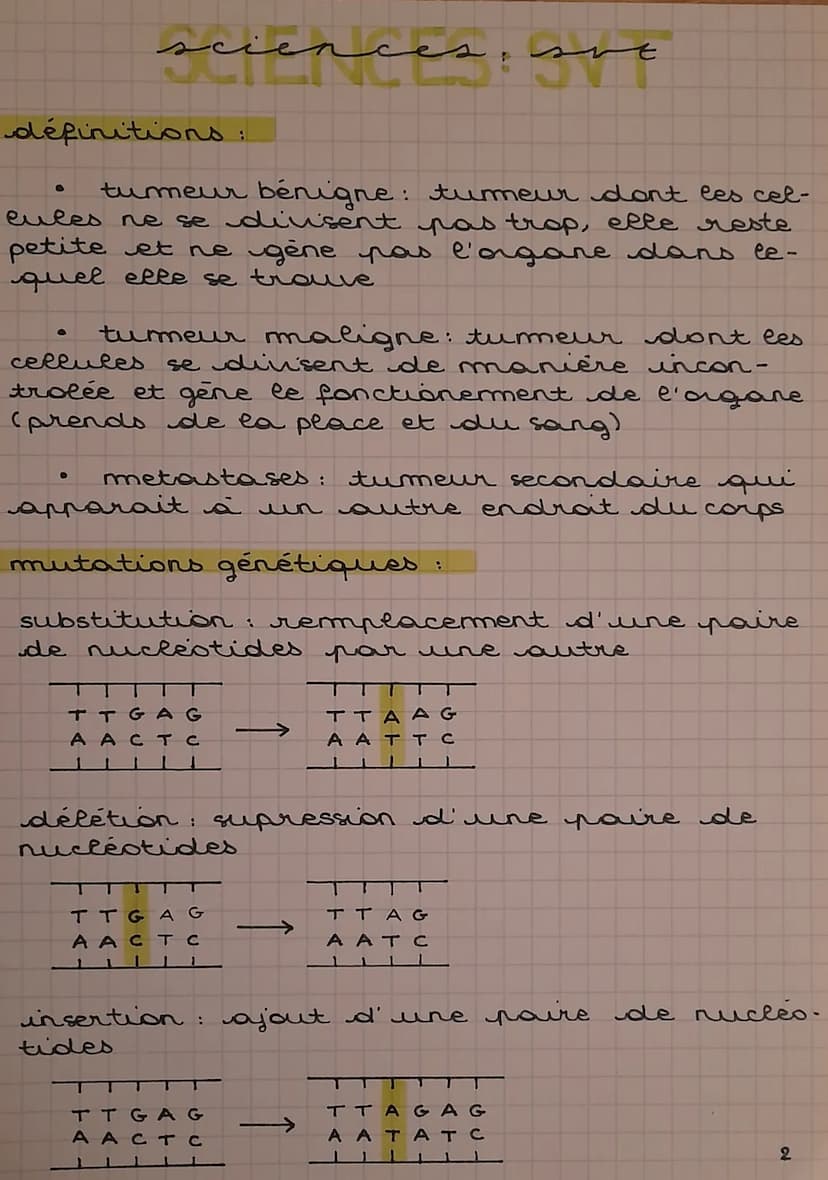 sciences : svt
SCIENCES : SVT
définitions :
• tumeur bénigne : tumeur dont les cel-
lules ne se divisent pas trop, elle reste
petite et ne gêne pas l'organe dans le-
quel elle se trouve
• tumeur maligne : tumeur dont les
cellules se divisent de manière incon-
trolée et gêne le fonctionerment de l'organe
(prends de la place et du sang)
• metastases : tumeur secondaire qui
apparait à un autre endroit du corps
mutations génétiques :
substitution : remplacement d'une paire
de nucléotides par une autre
T T G A G → T T A A G
A A C T C A A T T C
délétion : supression d'une paire de
nucléotides
T T G A G → T T A G
A A C T C A A T C
insertion : ajout d'une paire de nucléo-
tides
T T G A G → T T A G A G
A A C T C A A T A T C
2